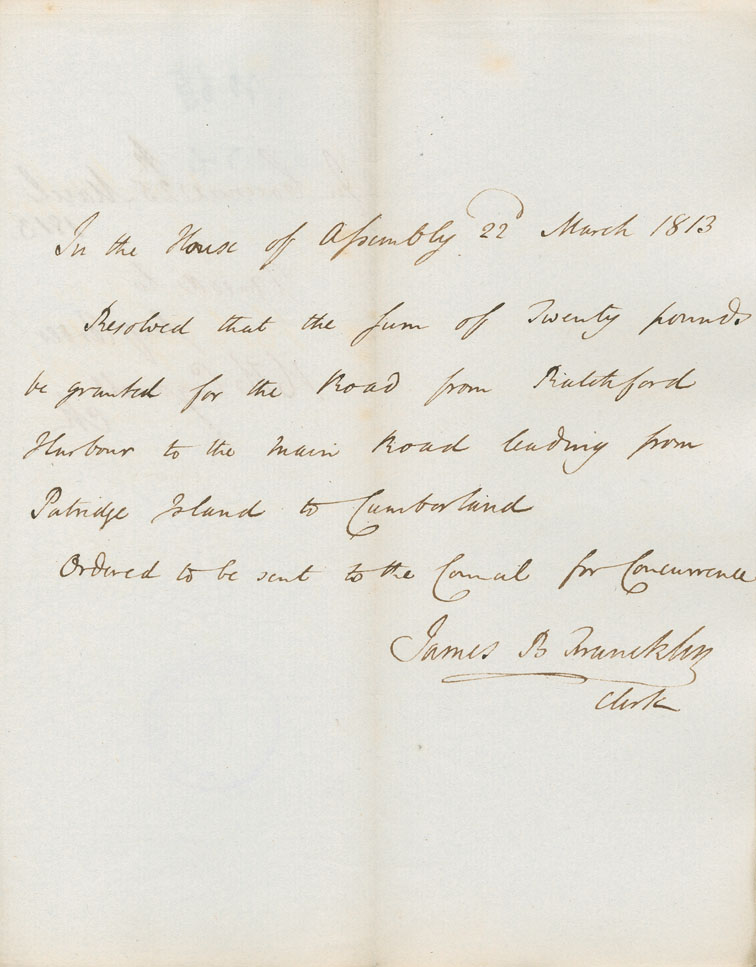 In the House of Assembly 22d March 1813
Resolved that the sum of Twenty pounds
be granted for the Road from Ratchford
Harbour to the main Road leading from
Patridge Island to Cumberland
Ordered to be sent to the Council for Concurrence
James B Franklin
Clerk